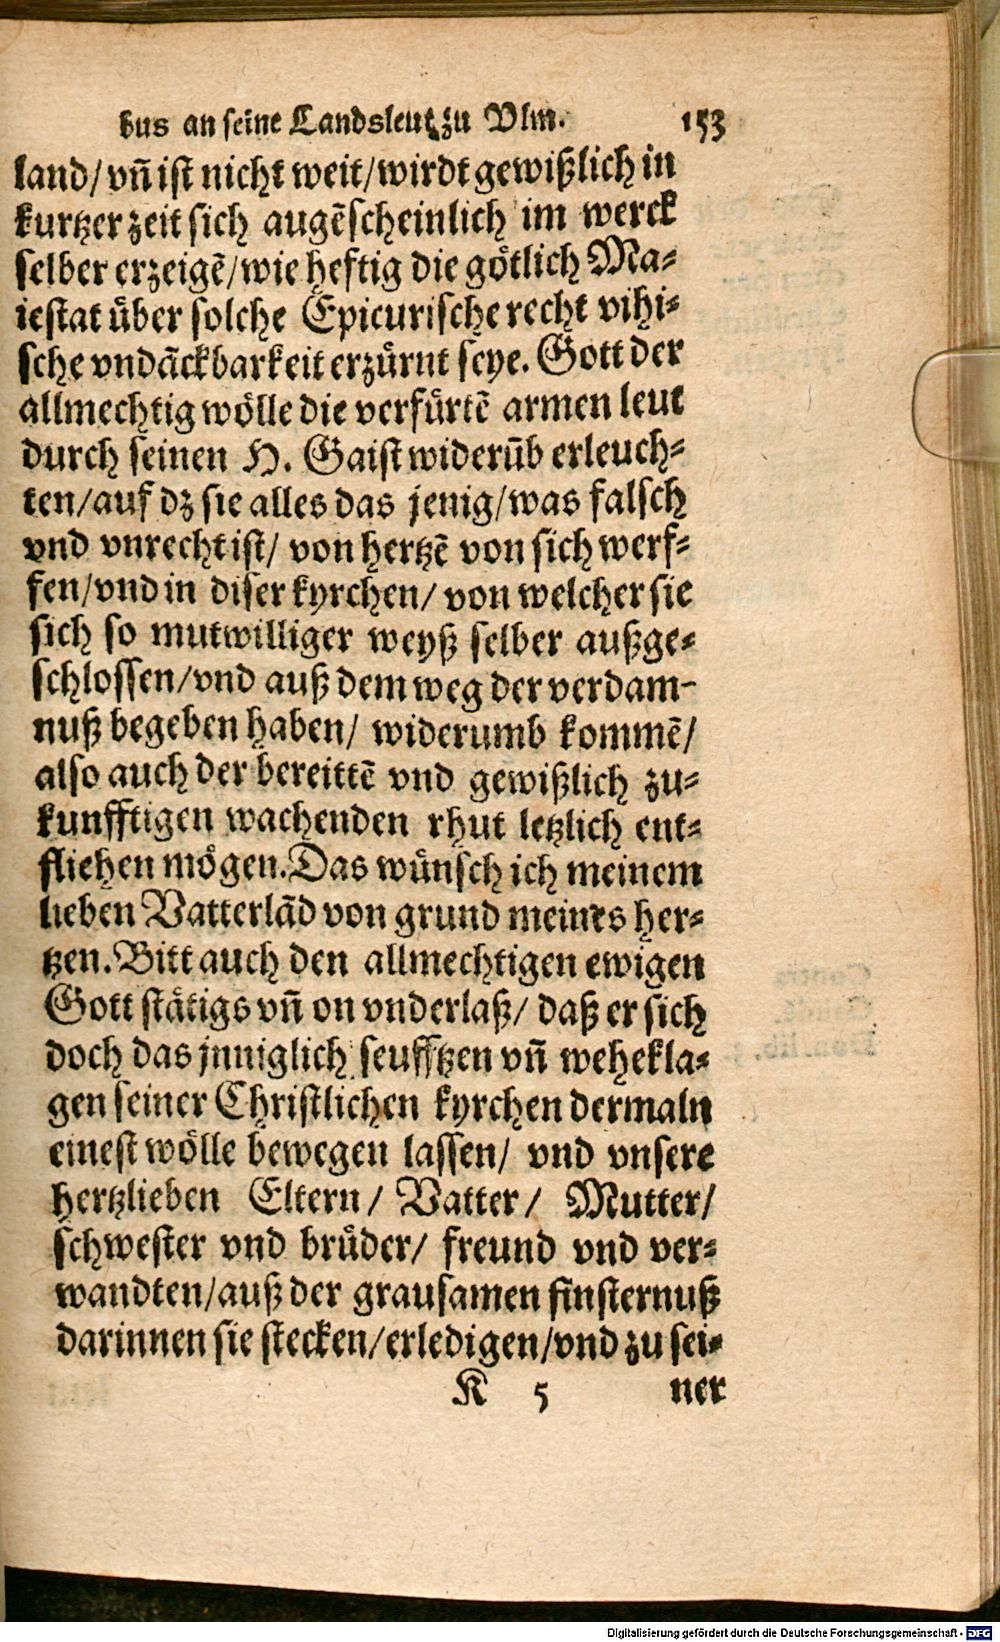 bus an seine Landsleut zu Vlm. 153
land/ vn̄ ist nicht weit/ wirdt gewißlich in
kurtzer zeit sich augēscheinlich im werck
selber erzeigē/ wie heftig die goͤtlich Ma⸗
iestat uͤber solche Epicurische recht vihi⸗
sche vndāckbarkeit erzuͤrnt seye. Gott der
allmechtig woͤlle die verfuͤrtē armen leut
durch seinen H. Gaist widerūb erleuch⸗
ten/ auf dz sie alles das jenig/ was falsch
vnd vnrecht ist/ von hertzē von sich werf⸗
fen/ vnd in diser kyrchen/ von welcher sie
sich so mutwilliger weyß selber außge⸗
schlossen/ vnd auß dem weg der verdam-
nuß begeben haben/ widerumb kommē/
also auch der bereittē vnd gewißlich zu⸗
kunfftigen wachenden rhut letzlich ent⸗
fliehen moͤgen. Das wuͤnsch ich meinem
lieben Vatterlād von grund meines her⸗
tzen. Bitt auch den allmechtigen ewigen
Gott staͤtigs vn̄ on vnderlaß/ daß er sich
doch das jnniglich seufftzen vn̄ wehekla⸗
gen seiner Christlichen kyrchen dermaln
einest woͤlle bewegen lassen/ vnd vnsere
hertzlieben Eltern/ Vatter/ Mutter/
schwester vnd bruͤder/ freund vnd ver⸗
wandten/ auß der grausamen finsternuß
darinnen sie stecken/ erledigen/ vnd zu sei⸗
K 5 ner
Digitalisierung gefördert durch die Deutsche Forschungsgemeinschaft - DFG